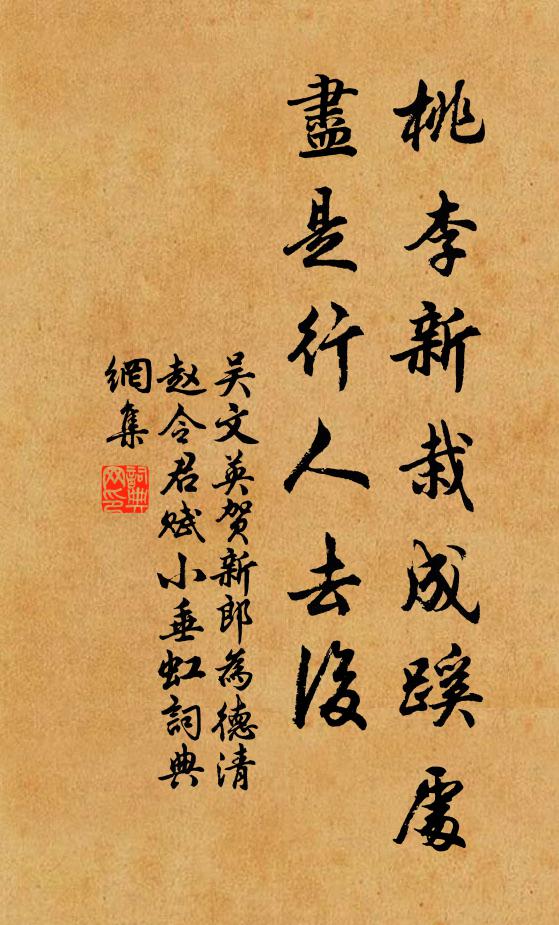 桃李新栽成蹊處
盡是行人去後
吴文英贺新郎為德清
赵令君赋小垂虹詞典
網集
詞典網印